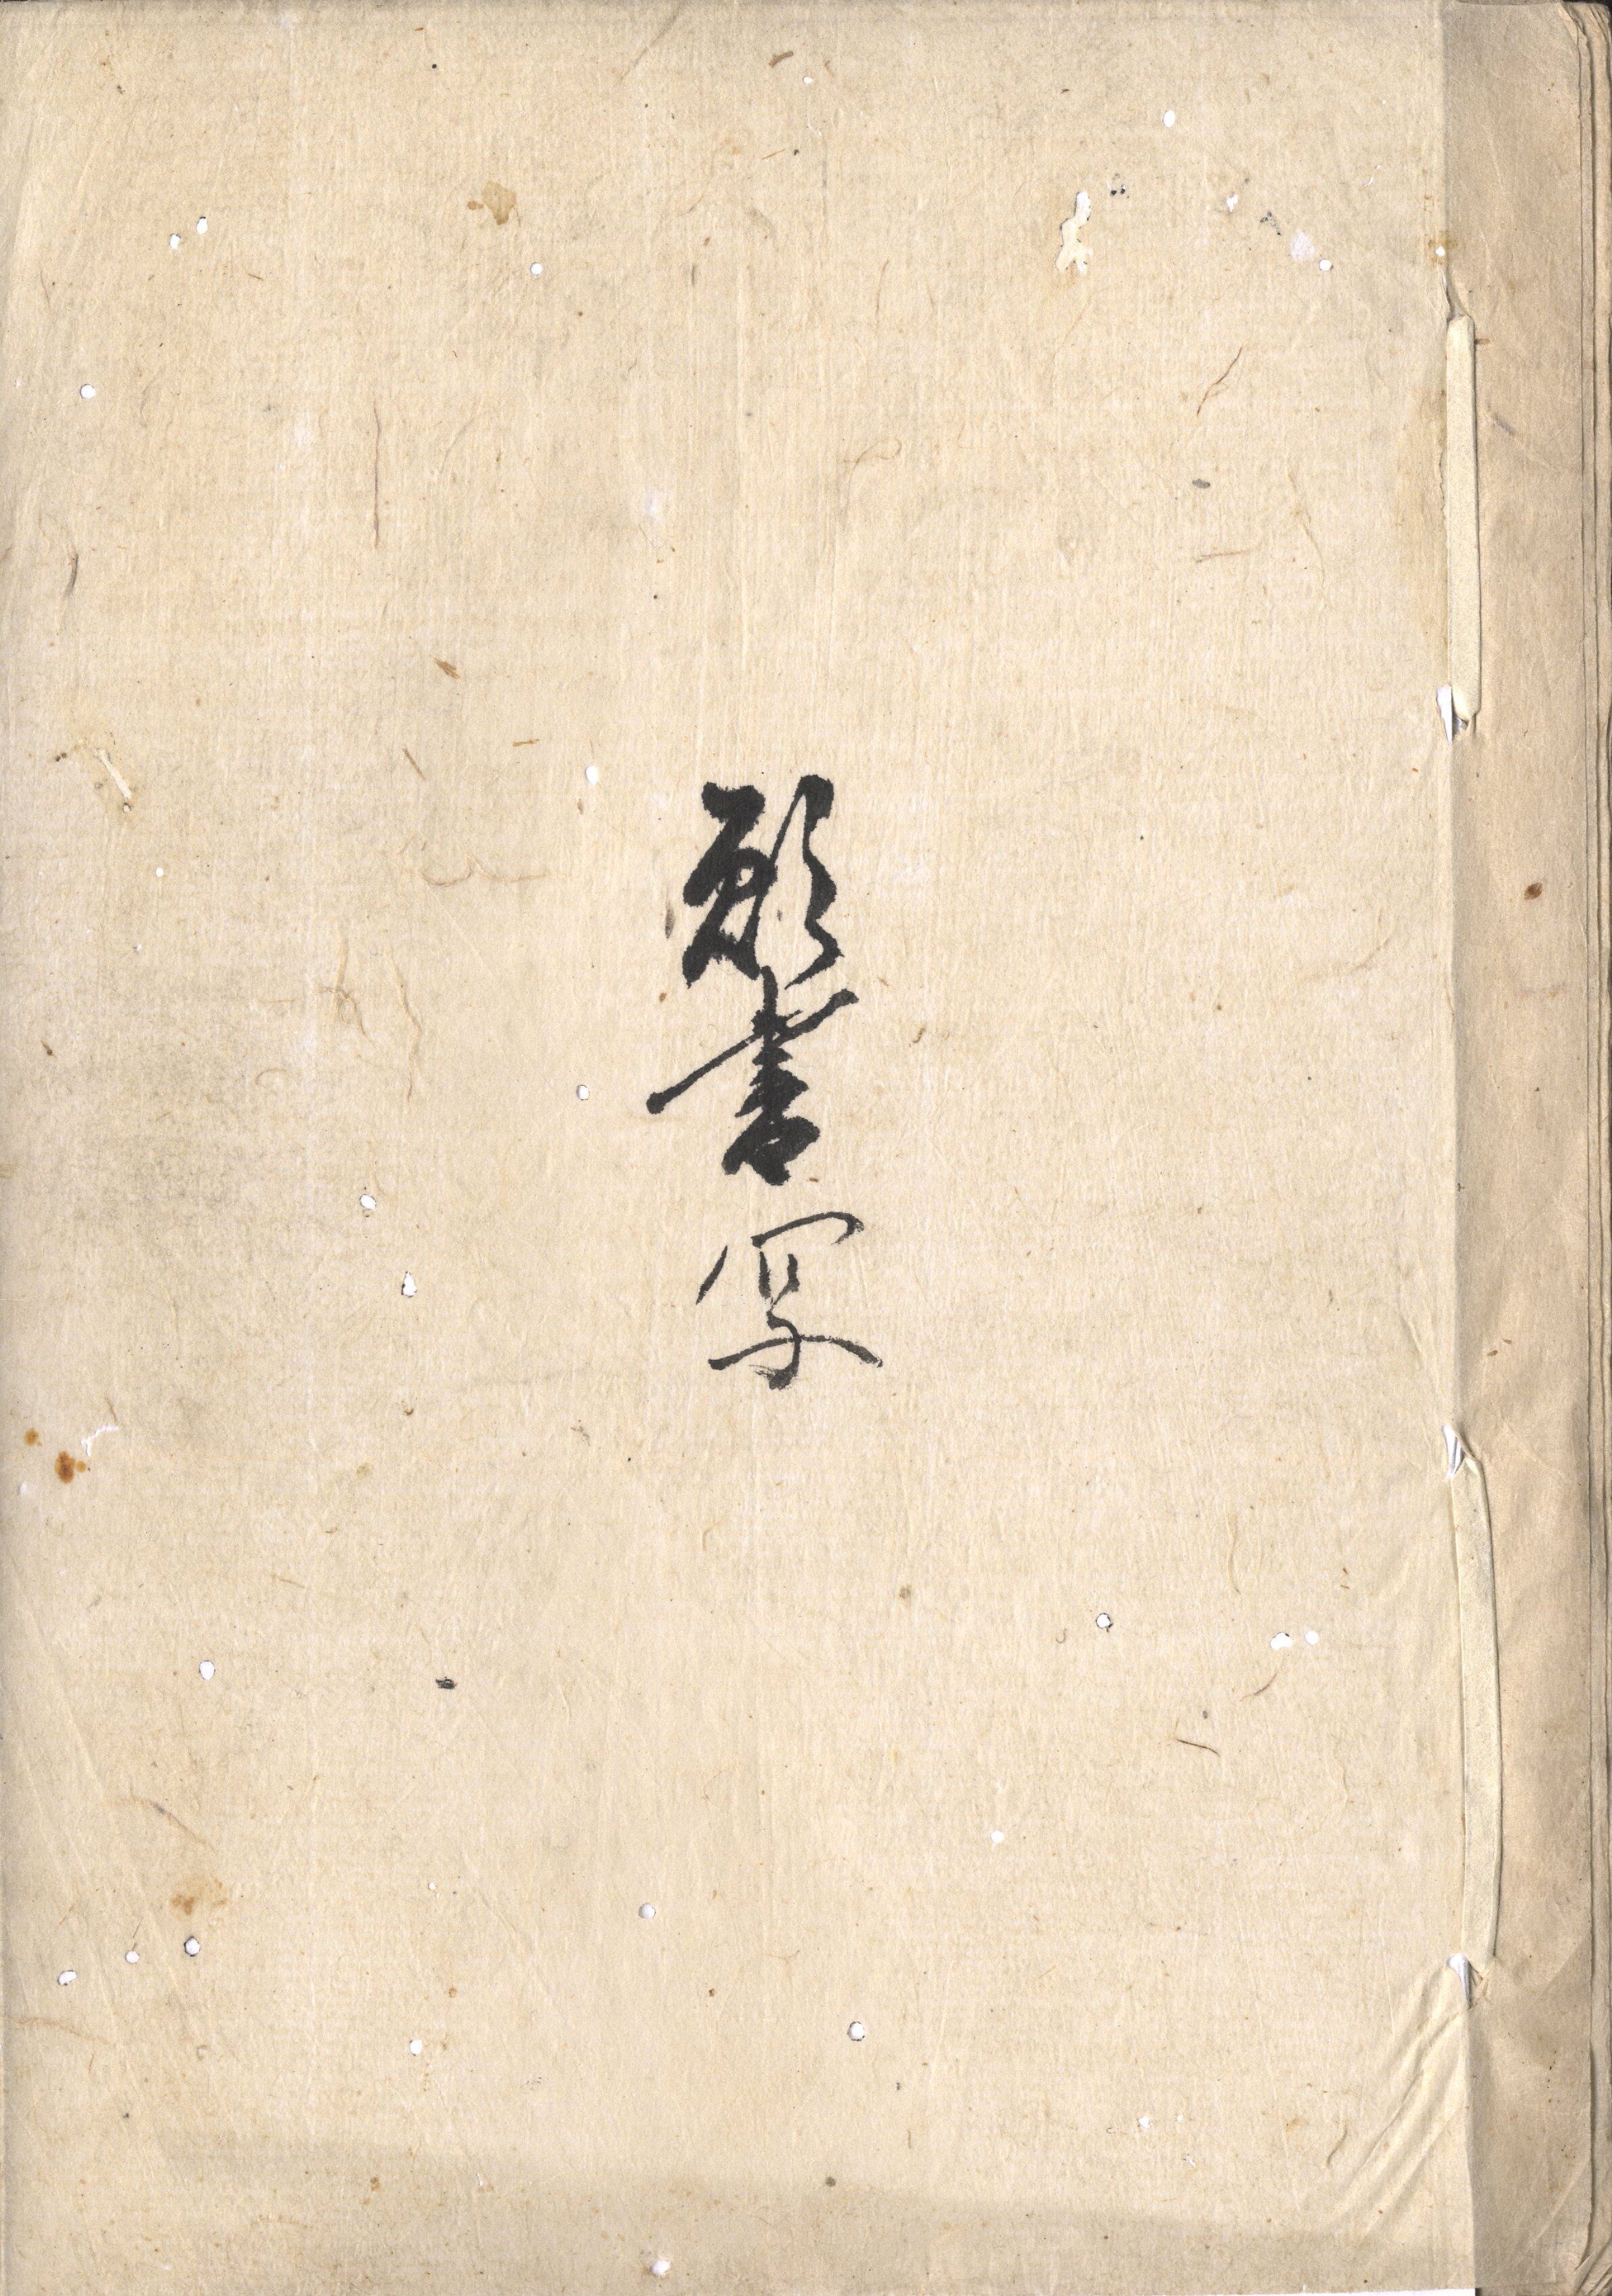 願書写